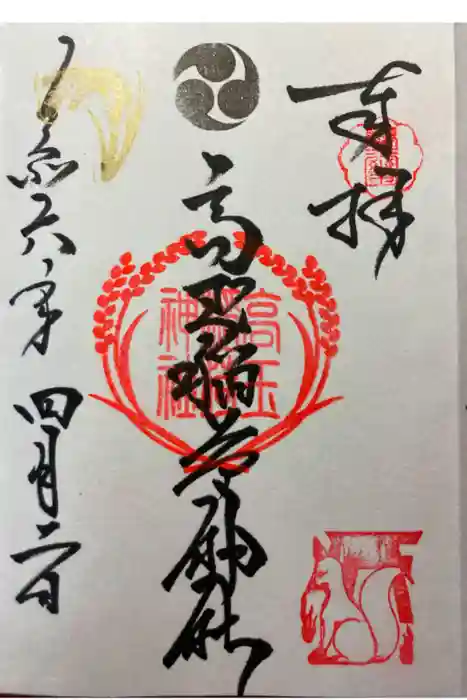 奉拝
高玉稲荷神社
高玉
稲荷
神社
令和六年 四月二日